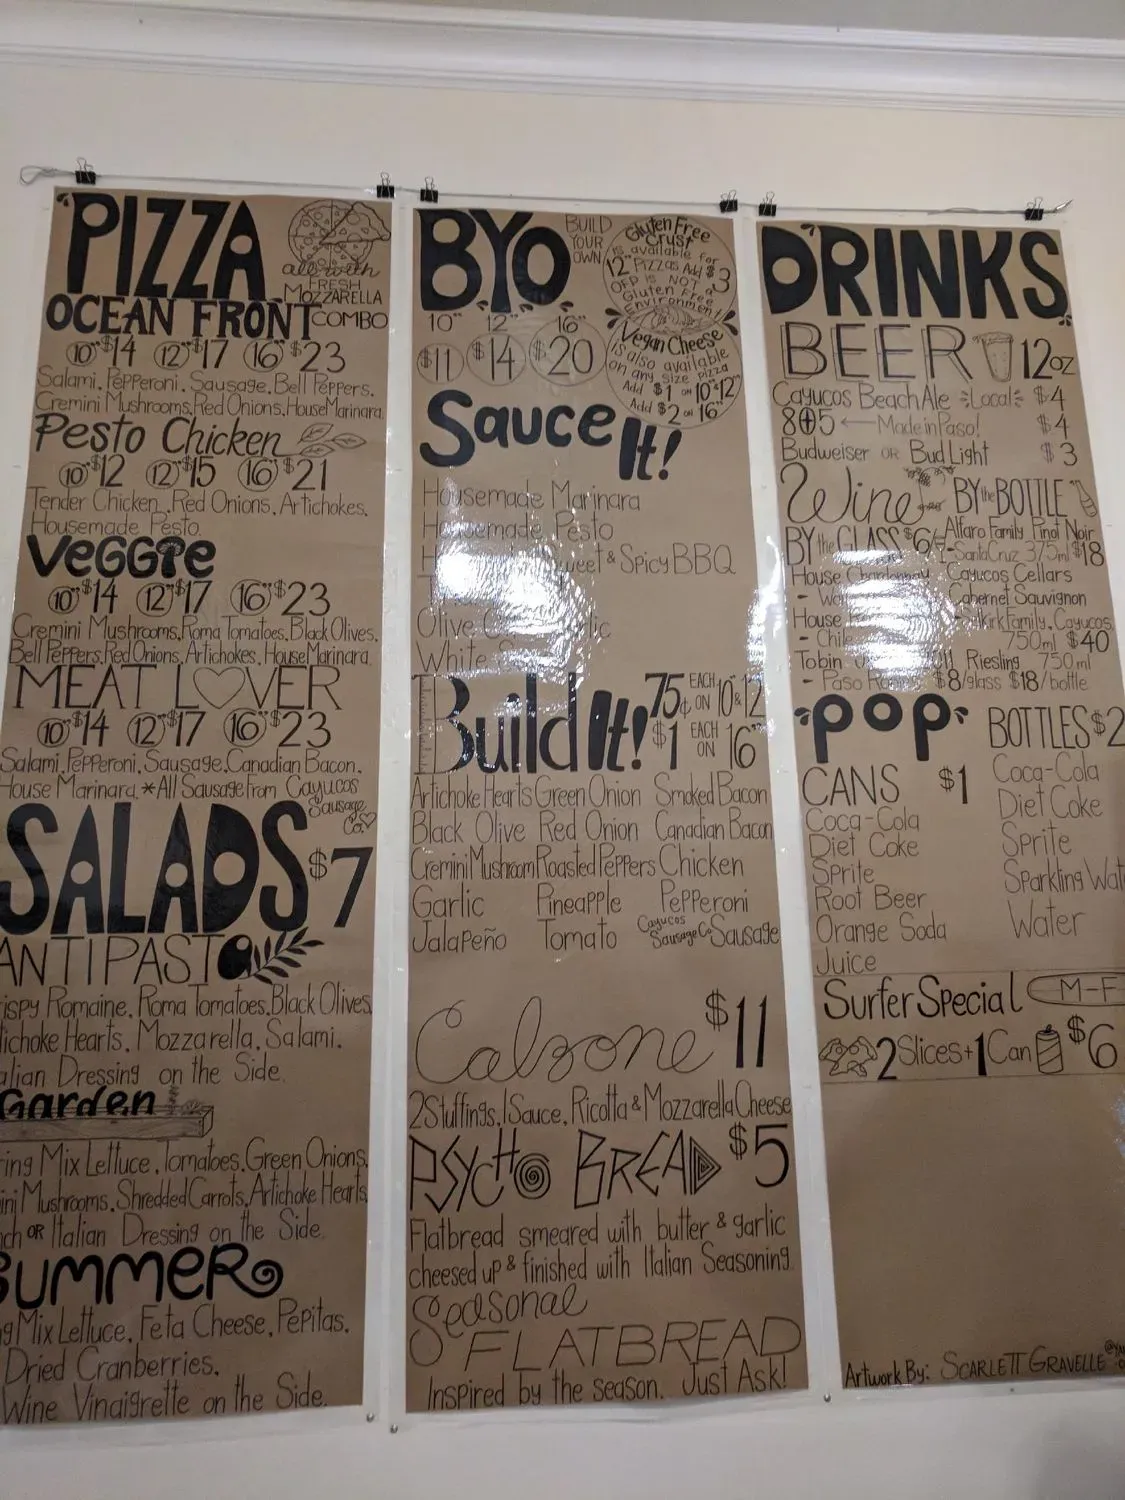 PIZZA
all with
FRESH
MOZZARELLA
OCEAN FRONT COMBO
10" $14 12" $17 16" $23
Salami, Pepperoni, Sausage, Bell Peppers,
Cremini Mushrooms, Red Onions, House Marinara.
Pesto Chicken
10" $12 12" $15 16" $21
Tender Chicken, Red Onions, Artichokes,
Housemade Pesto.
VEGGIE
10" $14 12" $17 16" $23
Cremini Mushrooms, Roma Tomatoes, Black Olives,
Bell Peppers, Red Onions, Artichokes, House Marinara.
MEAT LOVER
10" $14 12" $17 16" $23
Salami, Pepperoni, Sausage, Canadian Bacon,
House Marinara. *All Sausage From Cayucos
Sausage
Co.
SALADS $7
ANTIPASTO
rispy Romaine, Roma Tomatoes, Black Olives,
tichoke Hearts, Mozzarella, Salami.
alian Dressing on the Side.
Garden
ring Mix Lettuce, Tomatoes, Green Onions,
ini Mushrooms, Shredded Carrots, Artichoke Hearts
nch OR Italian Dressing on the Side.
SUMMER
g Mix Lettuce, Feta Cheese, Pepitas,
Dried Cranberries.
Wine Vinaigrette on the Side.
BYO
BUILD
YOUR
OWN
10" 12" 16"
$11 $14 $20
Gluten Free
Crust
is available for
12" Pizzas Add $3
OFP IS NOT a
Gluten Free
Environment!
Vegan Cheese
is also available
on any size pizza
Add $1 on 10" & 12"
Add $2 on 16"
Sauce It!
Housemade Marinara
Housemade Pesto
Sweet & Spicy BBQ
Olive
White
Build It! 75¢ EACH ON 10" & 12"
$1 EACH ON 16"
Artichoke Hearts Green Onion Smoked Bacon
Black Olive Red Onion Canadian Bacon
Cremini Mushroom Roasted Peppers Chicken
Garlic Pineapple Pepperoni
Jalapeño Tomato Cayucos Sausage Co. Sausage
Calzone $11
2 Stuffings, 1 Sauce, Ricotta & Mozzarella Cheese
PSYCHO BREAD $5
Flatbread smeared with butter & garlic
cheesed up & finished with Italian Seasoning.
Seasonal
FLATBREAD
Inspired by the season. Just Ask!
DRINKS
BEER 12oz
Cayucos Beach Ale Local $4
805 Made in Paso! $4
Budweiser OR Bud Light $3
Wine
BY the GLASS $6
House Chardonnay
House
- Chile
Tobin Riesling 750ml
- Paso $8/glass $18/bottle
BY the BOTTLE
Alfaro Family Pinot Noir
- Santa Cruz 375ml $18
Cayucos Cellars
Cabernet Sauvignon
- Selkirk Family, Cayucos
750ml $40
POP
CANS $1
Coca-Cola
Diet Coke
Sprite
Root Beer
Orange Soda
Juice
BOTTLES $2
Coca-Cola
Diet Coke
Sprite
Sparkling Wat
Water
Surfer Special M-F
2 Slices + 1 Can $6
Artwork By: SCARLETT GRAVELLE